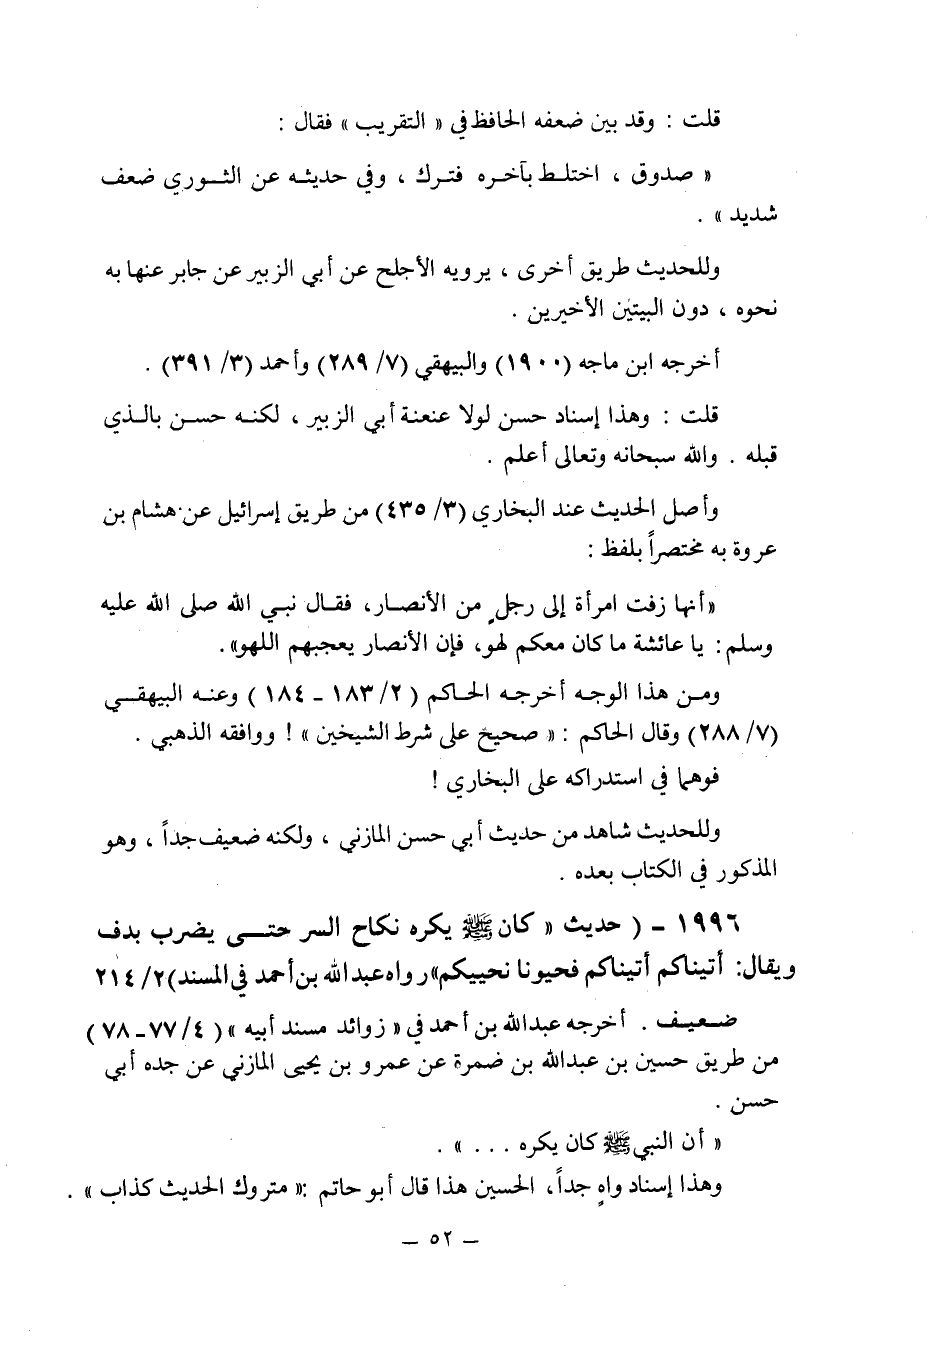 قلت : وقد بين ضعفه الحافظ في « التقريب » فقال :
« صدوق ، اختلط بآخره فترك ، وفي حديثه عن الثوري ضعف
شديد » .
وللحديث طريق أخرى ، يرويه الأجلح عن أبي الزبير عن جابر عنها به
نحوه ، دون البيتين الأخيرين .
أخرجه ابن ماجه (١٩٠٠) والبيهقي (٧/ ٢٨٩) وأحمد (٣/ ٣٩١) .
قلت : وهذا إسناد حسن لولا عنعنة أبي الزبير ، لكنه حسن بالذي
قبله . والله سبحانه وتعالى أعلم .
وأصل الحديث عند البخاري (٣/ ٤٣٥) من طريق إسرائيل عن هشام بن
عروة به مختصراً بلفظ :
«أنها زفت امرأة إلى رجلٍ من الأنصار، فقال نبي الله صلى الله عليه
وسلم: يا عائشة ما كان معكم لهو، فإن الأنصار يعجبهم اللهو» .
ومن هذا الوجه أخرجه الحاكم ( ٢/ ١٨٣ - ١٨٤ ) وعنه البيهقي
(٧/ ٢٨٨) وقال الحاكم : « صحيح على شرط الشيخين » ! ووافقه الذهبي .
فوهما في استدراكه على البخاري !
وللحديث شاهد من حديث أبي حسن المازني ، ولكنه ضعيف جداً ، وهو
المذكور في الكتاب بعده .
١٩٩٦ - ( حديث « كان ﷺ يكره نكاح السر حتى يضرب بدف
ويقال: أتيناكم أتيناكم فحيونا نحييكم» رواه عبدالله بن أحمد في المسند) ٢/ ٢١٤
ضعيف . أخرجه عبدالله بن أحمد في « زوائد مسند أبيه » ( ٤/ ٧٧ - ٧٨ )
من طريق حسين بن عبدالله بن ضمرة عن عمرو بن يحيى المازني عن جده أبي
حسن .
« أن النبي ﷺ كان يكره . . . » .
وهذا إسناد واهٍ جداً، الحسين هذا قال أبو حاتم :« متروك الحديث كذاب » .
— ٥٢ —